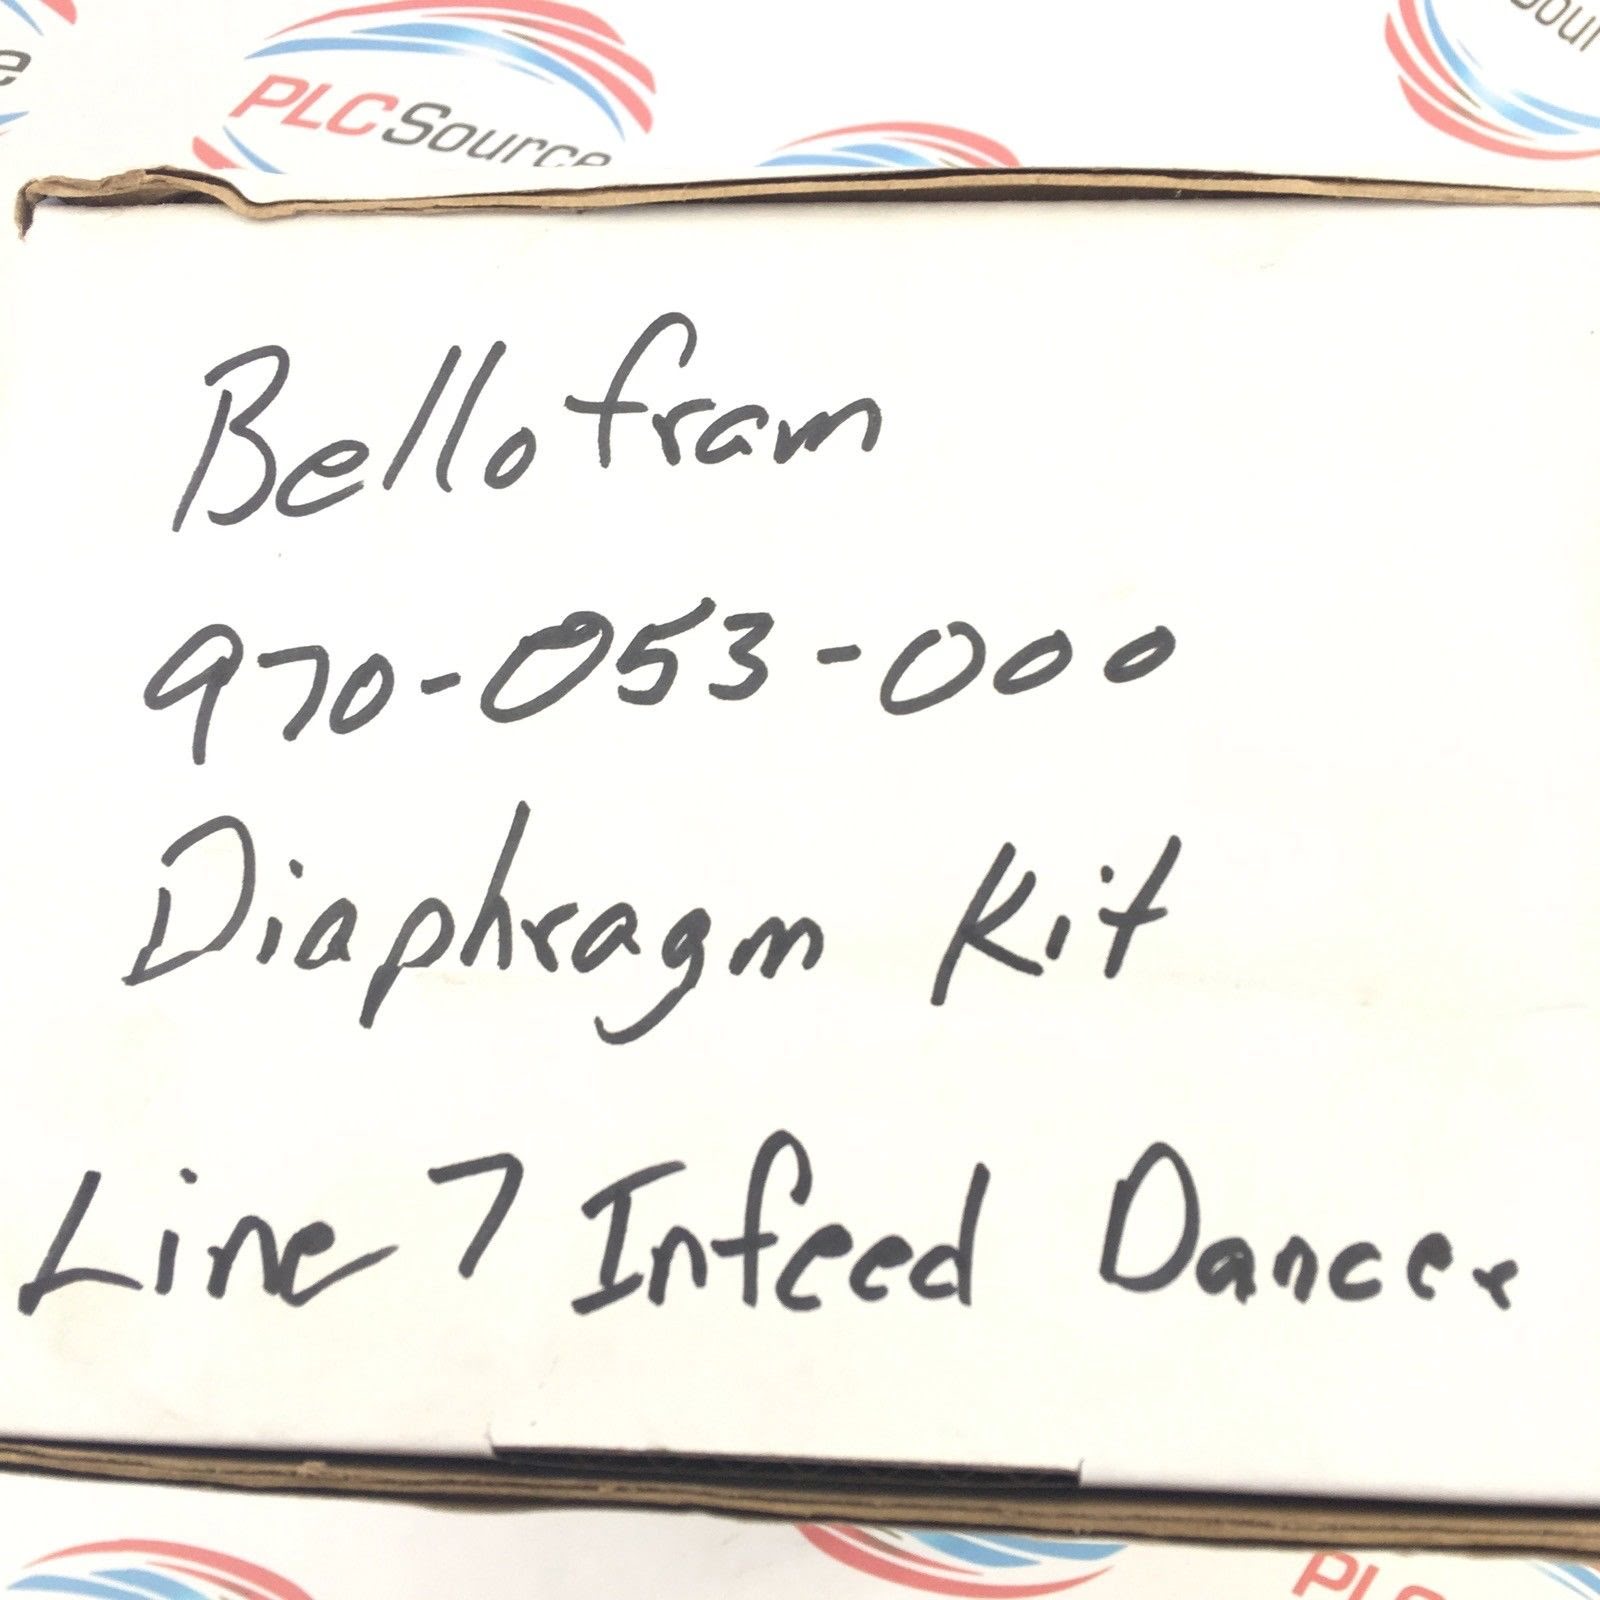 e
PLCSource
Sour
Bellofram
970-053-000
Diaphragm Kit
Line 7 Infeed Dancer
PLC